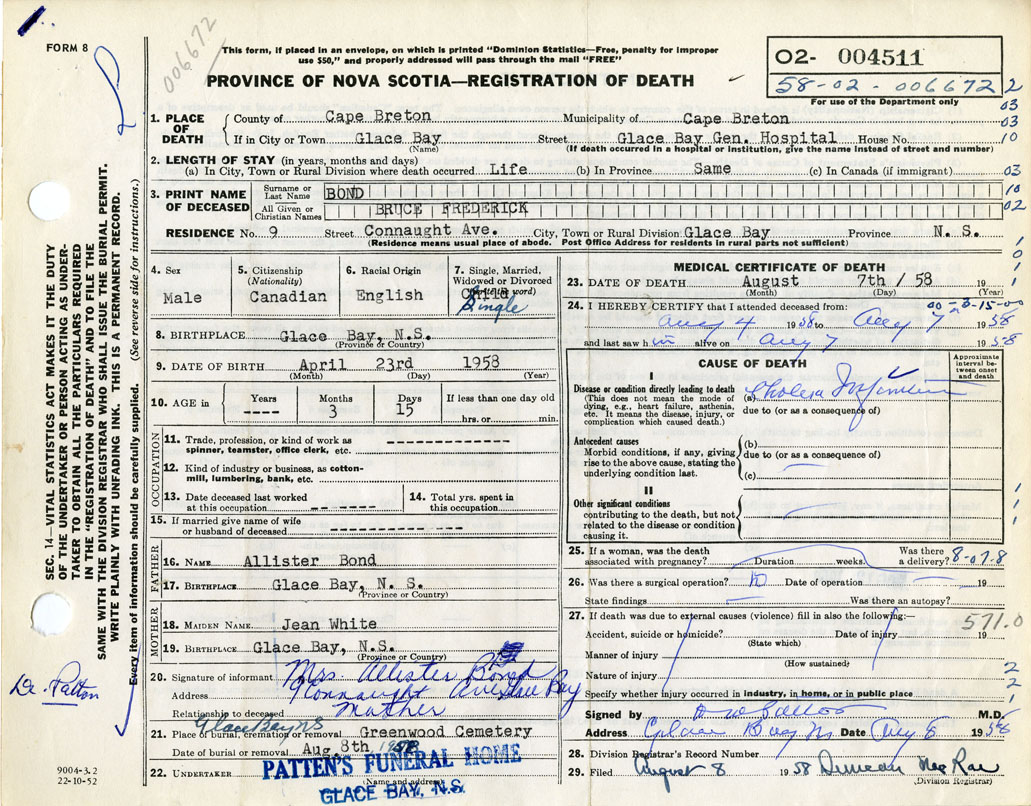 FORM 8
006672
This form, if placed in an envelope, on which is printed "Dominion Statistics—Free, penalty for improper
use $50," and properly addressed will pass through the mail "FREE"
PROVINCE OF NOVA SCOTIA—REGISTRATION OF DEATH
02- 004511
58-02-006672
For use of the Department only
2
03
03
10
03
10
02
1. PLACE OF DEATH County of Cape Breton Municipality of Cape Breton
If in City or Town Glace Bay Street Glace Bay Gen. Hospital House No.
(Name) (If death occurred in a hospital or institution, give the name instead of street and number)
2. LENGTH OF STAY (in years, months and days)
(a) In City, Town or Rural Division where death occurred Life (b) In Province Same (c) In Canada (if immigrant)
3. PRINT NAME OF DECEASED Surname or Last Name BOND
All Given or Christian Names BRUCE FREDERICK
RESIDENCE No. 9 Street Connaught Ave. City, Town or Rural Division Glace Bay Province N. S.
(Residence means usual place of abode. Post Office Address for residents in rural parts not sufficient)
4. Sex
Male
5. Citizenship
(Nationality)
Canadian
6. Racial Origin
English
7. Single, Married,
Widowed or Divorced
(write the word)
Child
Single
8. BIRTHPLACE Glace Bay, N.S.
(Province or Country)
9. DATE OF BIRTH April 23rd 1958
(Month) (Day) (Year)
10. AGE in Years Months Days If less than one day old
---- 3 15 hrs. or min.
OCCUPATION
11. Trade, profession, or kind of work as
spinner, teamster, office clerk, etc.
12. Kind of industry or business, as cotton-
mill, lumbering, bank, etc.
13. Date deceased last worked
at this occupation
14. Total yrs. spent in
this occupation
15. If married give name of wife
or husband of deceased
FATHER
16. NAME Allister Bond
17. BIRTHPLACE Glace Bay, N. S.
(Province or Country)
MOTHER
18. MAIDEN NAME Jean White
19. BIRTHPLACE Glace Bay, N.S.
(Province or Country)
20. Signature of informant Mrs Allister Bond
Address 9 Connaught Ave Glace Bay
Relationship to deceased Mother
Glace Bay NS
21. Place of burial, cremation or removal Greenwood Cemetery
Date of burial or removal Aug. 8th 1958
22. UNDERTAKER PATTEN'S FUNERAL HOME
(Name and address)
GLACE BAY, N.S.
MEDICAL CERTIFICATE OF DEATH
23. DATE OF DEATH August 7th / 58 19
(Month) (Day) (Year)
24. I HEREBY CERTIFY that I attended deceased from:
Aug 4 1958 to Aug 7 1958
and last saw him alive on Aug 7 1958
CAUSE OF DEATH
Approximate
interval be-
tween onset
and death
I
Disease or condition directly leading to death
(This does not mean the mode of
dying, e.g., heart failure, asthenia,
etc. It means the disease, injury, or
complication which caused death.)
(a) Cholera Infantum
due to (or as a consequence of)
Antecedent causes
Morbid conditions, if any, giving
rise to the above cause, stating the
underlying condition last.
(b)
due to (or as a consequence of)
(c)
II
Other significant conditions
contributing to the death, but not
related to the disease or condition
causing it.
25. If a woman, was the death
associated with pregnancy? Duration weeks. Was there
a delivery? 8-07-8
26. Was there a surgical operation? Date of operation 19
State findings Was there an autopsy?
27. If death was due to external causes (violence) fill in also the following:—
571.0
Accident, suicide or homicide? Date of injury 19
(State which)
Manner of injury
(How sustained)
Nature of injury
Specify whether injury occurred in industry, in home, or in public place
Signed by M.D.
Address Glace Bay NS Date Aug 8 1958
28. Division Registrar's Record Number
29. Filed August 8 1958 Duncan MacRae
(Division Registrar)
SEC. 14—VITAL STATISTICS ACT MAKES IT THE DUTY
OF THE UNDERTAKER OR PERSON ACTING AS UNDER-
TAKER TO OBTAIN ALL THE PARTICULARS REQUIRED
IN THE "REGISTRATION OF DEATH" AND TO FILE THE
SAME WITH THE DIVISION REGISTRAR WHO SHALL ISSUE THE BURIAL PERMIT.
WRITE PLAINLY WITH UNFADING INK. THIS IS A PERMANENT RECORD.
Every item of information should be carefully supplied. (See reverse side for instructions.)
Dr. Patton
9004-3.2
22-10-52